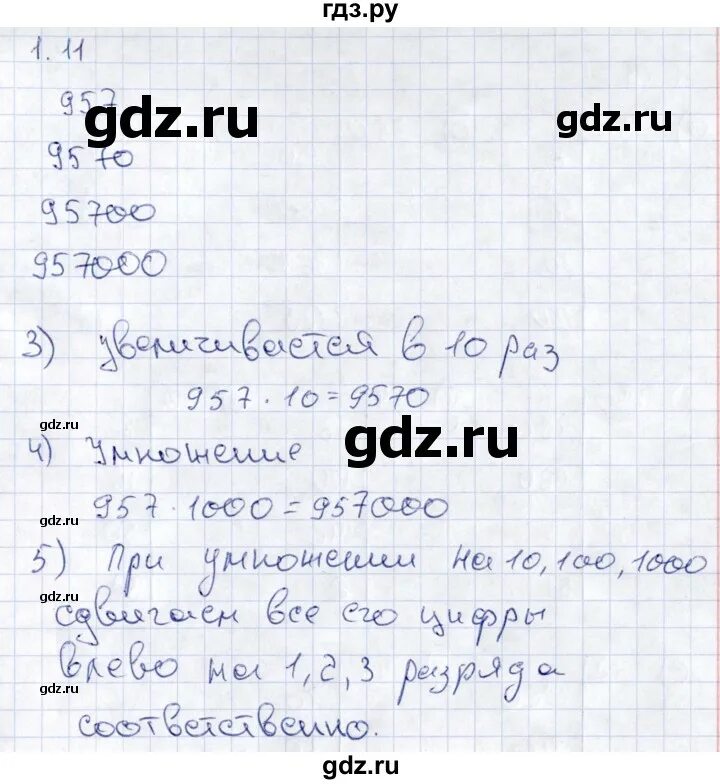 гдз.ру
1.11
957
gdz.ru
gdz.ru
9570
95700
957000
3) увеличивается в 10 раз
957 · 10 = 9570
gdz.ru
gdz.ru
4) Умножение
957 · 1000 = 957000
gdz.ru
5) При умножении на 10, 100, 1000
gdz.ru
сдвигаем все его цифры
влево на 1, 2, 3 разряда
gdz.ru
соответственно.
gdz.ru